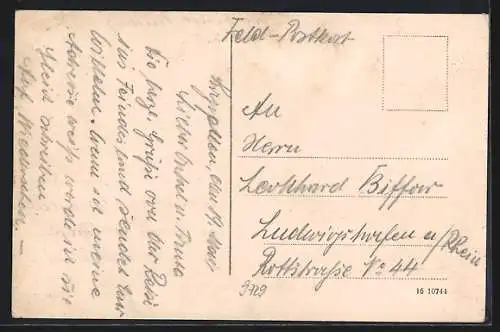 Feld-Postkart
An
Herrn
Leonhard Biffar
Ludwigshafen a/Rhein
Rottstraße No 44
9729
16 10744
den 19. Mai
Lieber Onkel u. Tante
Die herzl. Grüße von der Reise
ins Feindesland sendet Euer
Wilhelm. Wenn ich meine
Adresse weiß werde ich sie
gleich schreiben
Auf Wiedersehen. –